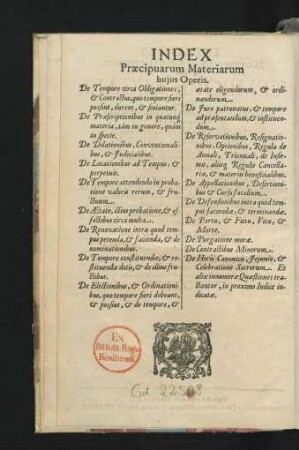 INDEX
Præcipuarum Materiarum
hujus Operis.
De Tempore circa Obligationes,
& Contractus, quo tempore fieri
possint, durent, & finiantur.
De Præscriptionibus in quacunq;
materia, tàm in genere, quàm
in specie.
De Dilationibus, Conventionali-
bus, & Judicialibus.
De Locationibus ad Tempus, &
perpetuis.
De Tempore attendendo in proba-
tione valoris rerum, & fru-
ctuum.
De Ætate, illius probatione, & ef-
fectibus circa multa.
De Renovatione intra quod tem-
pus petenda, & facienda, & de
nominationibus.
De Tempore constituendæ, & re-
stituendæ dotis, & de illius fru-
ctibus.
De Electionibus, & Ordinationi-
bus, quo tempore fieri debeant,
& possint, & de tempore, &
ætate eligendorum, & ordi-
nandorum.
De Jure patronatus, & tempore
ad præsentandum, & instituen-
dum.
De Reservationibus, Resignatio-
nibus, Optionibus, Regula de
Annali, Triennali, de Infir-
mis, aliisq; Regulis Cancella-
riæ, & materia beneficialibus.
De Appellationibus, Desertioni-
bus & Cursu fatalium.
De Definitionibus intra quod
tempus faciendæ & terminandæ.
De Partu, & Fœtu, Vita, &
Morte.
De Purgatione moræ.
De Contractibus Minorum.
De Horis Canonicis, Jejuniis, &
Celebratione Sacrorum. Et
aliæ innumeræ Quæstiones tra-
ctantur, in proximo Indice in-
dicatæ.
Ex
Biblioth. Regia
Berolinensi.
Gd 22508